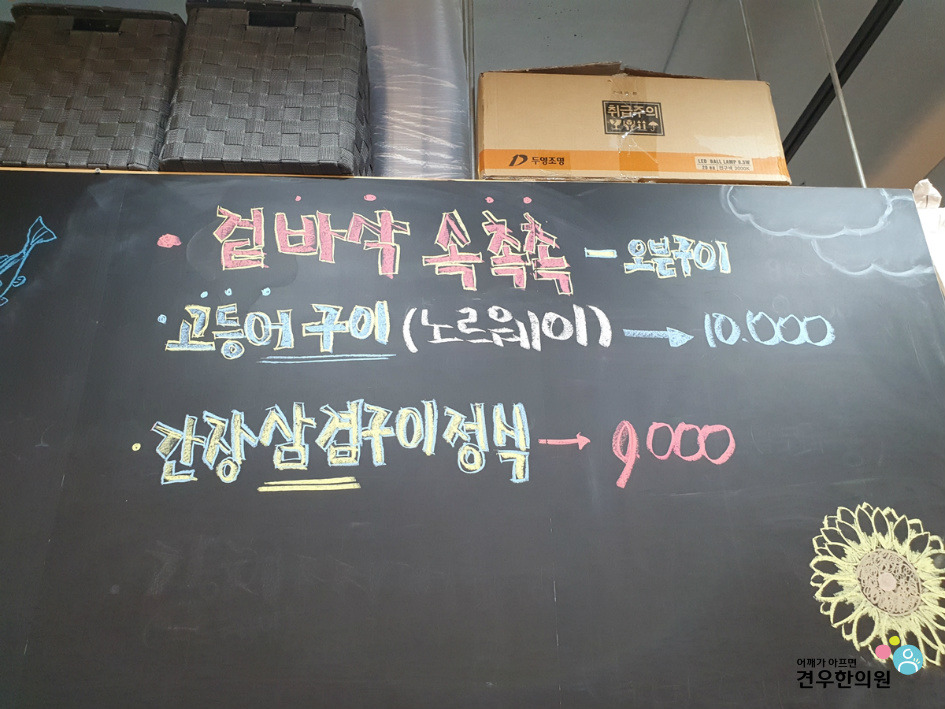 취급주의
두영조명
LED BALL LAMP 8.5W
겉바삭 속촉촉 - 오븐구이
고등어 구이 (노르웨이) → 10.000
간장삼겹구이정식 → 9000
어깨가 아프면
견우한의원